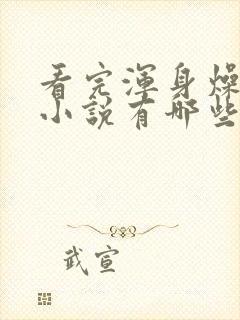 看完渾身燥
小說有哪些
武宣